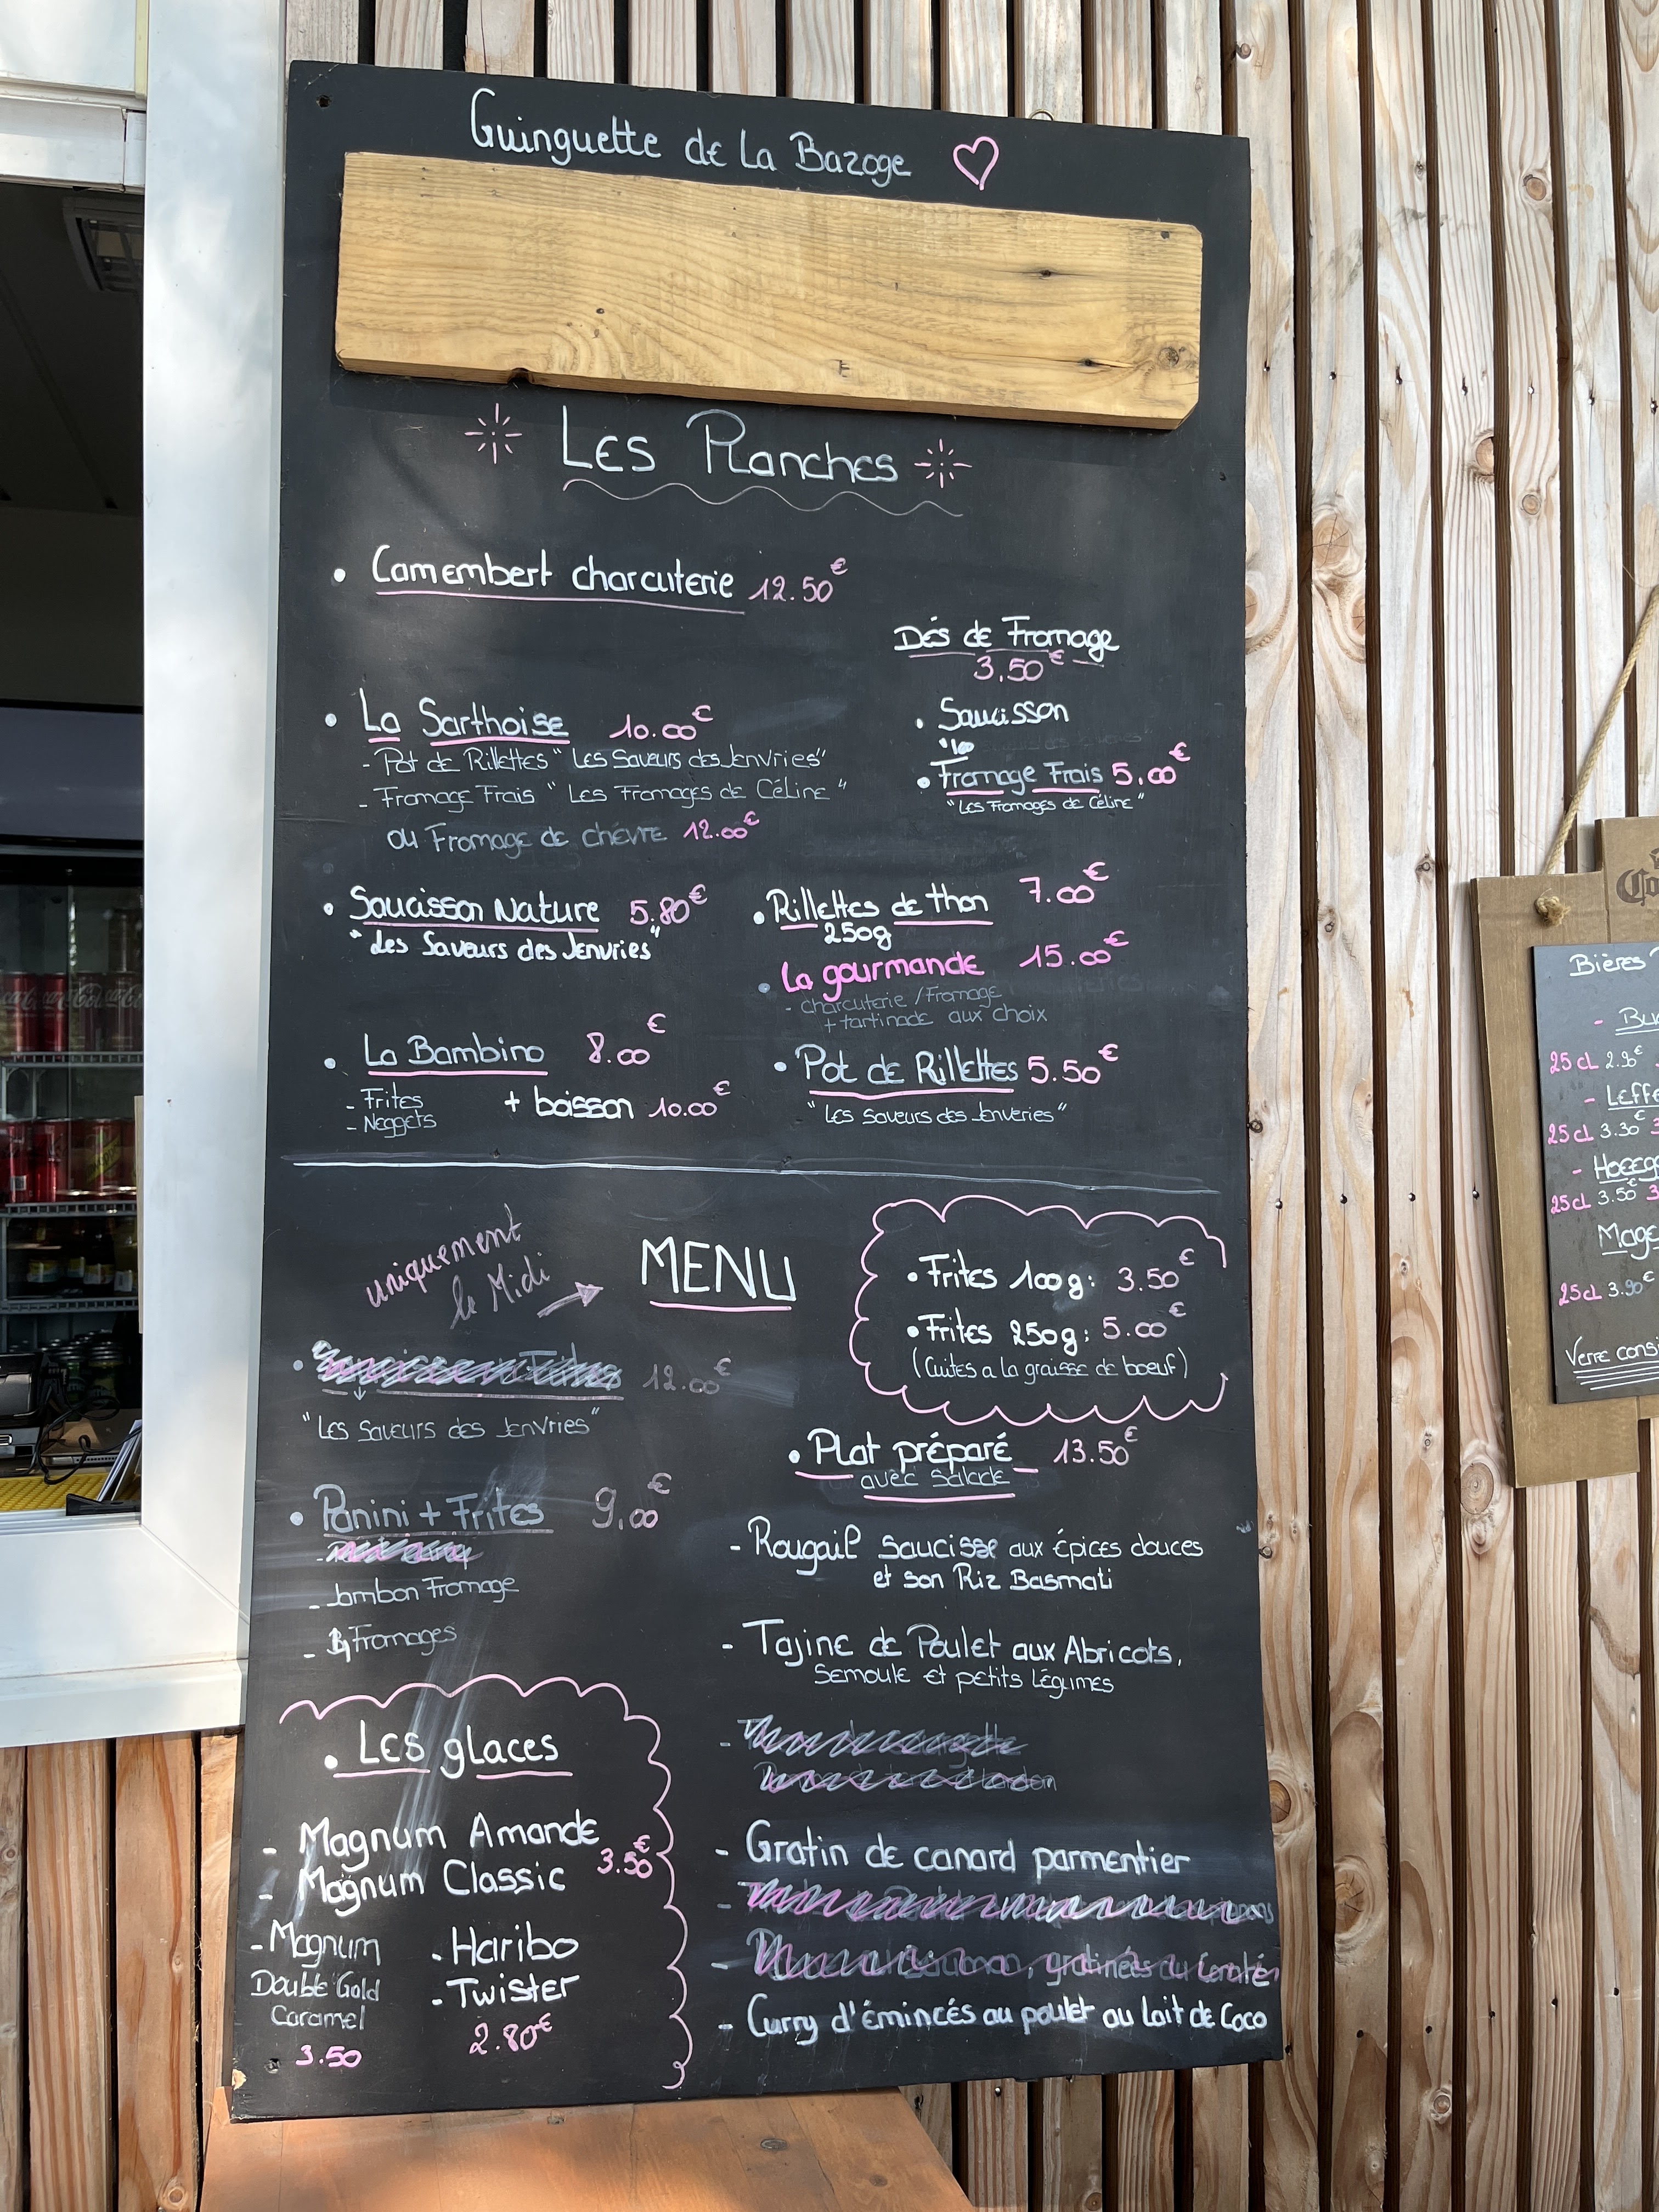 Guinguette de La Bazoge
Les Planches
• Camembert charcuterie 12.50€
Dés de Fromage
3,50€
• La Sarthoise 10.00€
- Pot de Rillettes "Les Saveurs des Jenvries"
- Fromage Frais "Les Fromages de Céline"
ou Fromage de chèvre 12.00€
• Saucisson
• Fromage Frais 5,00€
"Les Fromages de Céline"
• Saucisson Nature 5.80€
"Les Saveurs des Jenvries"
• Rillettes de thon 7.00€
250g
• La gourmande 15.00€
- charcuterie / Fromage
+ tartinade aux choix
• La Bambino 8.00€
- Frites
- Neggets
+ boisson 10.00€
• Pot de Rillettes 5.50€
"Les Saveurs des Jenveries"
uniquement
le Midi
MENU
• Frites 100g: 3.50€
• Frites 250g: 5.00€
(Cuites a la graisse de boeuf)
• 12.00€
"Les Saveurs des Jenvries"
• Panini + Frites 9,00€
- Jambon Fromage
- Fromages
• Plat préparé 13.50€
avec Salade
- Rougail saucisse aux épices douces
et son Riz Basmati
- Tajine de Poulet aux Abricots,
semoule et petits légumes
- Gratin de canard parmentier
gratinées au
- Curry d'émincés au poulet au lait de Coco
• Les glaces
- Magnum Amande
- Magnum Classic 3.50€
- Magnum
Double Gold
Caramel
3.50
- Haribo
- Twister
2.80€
Bières
25cl 2.90€
- Leffe
25cl 3.30€
25cl 3.50€
25cl 3.90€
Verre